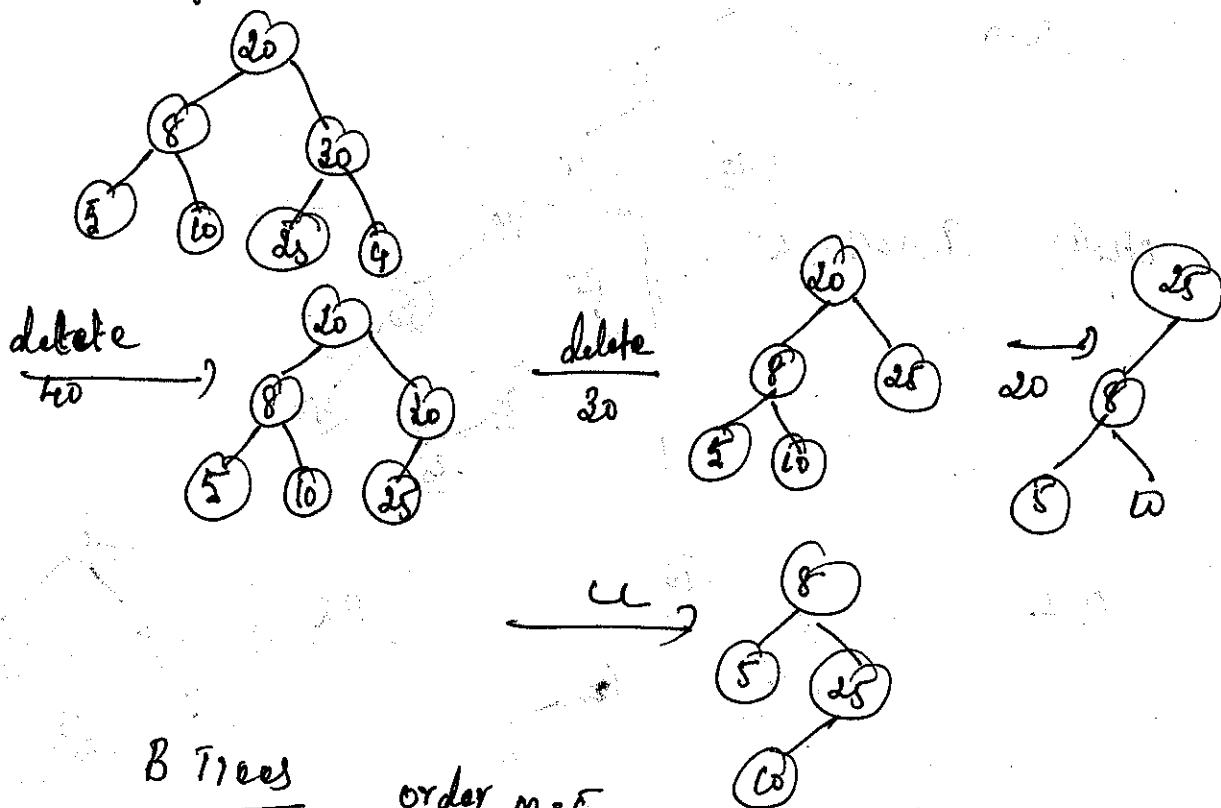 20
8 30
5 10 25 4
delete
40
20
8 30
5 10 25
delete
30
20
8 25
5 10
20
25
8
5 10
LL
8
5 25
10
B Trees
order m=5